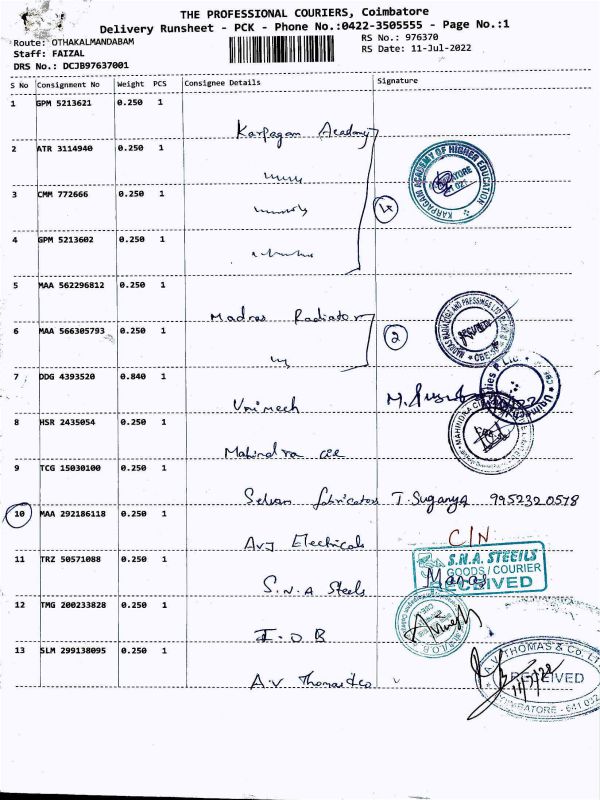 THE PROFESSIONAL COURIERS, Coimbatore
Delivery Runsheet - PCK - Phone No.:0422-3505555 - Page No.:1
Route: OTHAKALMANDABAM
Staff: FAIZAL
DRS No.: DCJB97637001
RS No.: 976370
RS Date: 11-Jul-2022
S No Consignment No Weight PCS Consignee Details Signature
1 GPM 5213621 0.250 1
Karpagam Academy
2 ATR 3114940 0.250 1
KARPAGAM ACADEMY OF HIGHER EDUCATION
3 CMM 772666 0.250 1
4 GPM 5213602 0.250 1
5 MAA 562296812 0.250 1
Madras Radiator
6 MAA 566305793 0.250 1
2
MADRAS RADIATOR AND PRESSINGS LTD
7 DDG 4393520 0.840 1
Unimech
8 HSR 2435054 0.250 1
Mahindra cie
MAHINDRA CIE
9 TCG 15030100 0.250 1
Selvan fabricators T. Suganya 9952320578
10 MAA 292186118 0.250 1
AVJ Electricals C/N
11 TRZ 50571088 0.250 1
S.N.A Steels
S.N.A. STEEILS
GOODS / COURIER
RECEIVED
Manas
12 TMG 200233828 0.250 1
I.O.B
13 SLM 299138095 0.250 1
A.V Thomas &co
A.V. THOMAS & Co. LT
RECEIVED
COIMBATORE - 641 032